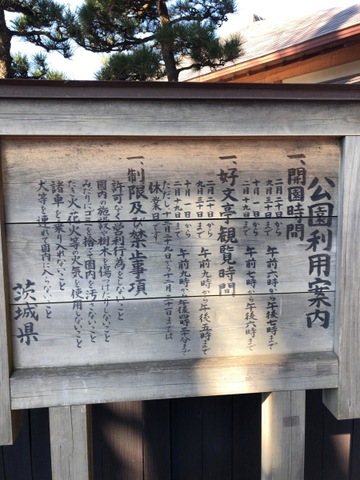 公園利用案内
一、開園時間
二月二十日から
九月三十日まで 午前六時から午後七時まで
十月一日から
二月十九日まで 午前七時から午後六時まで
一、好文亭観覧時間
二月二十日から
九月三十日まで 午前九時から午後五時まで
十月一日から
二月十九日まで 午前九時から午後四時半分まで
休業日 十二月二十九日から十二月三十一日まで
一、制限及び禁止事項
許可なく営利行為をしないこと
園内の施設や樹木を傷つけたりしないこと
みだりにゴミを捨て園内を汚さないこと
たき火、花火等の火気を使用しないこと
諸車を乗り入れないこと
犬等を連れて園内に入らないこと
茨城県